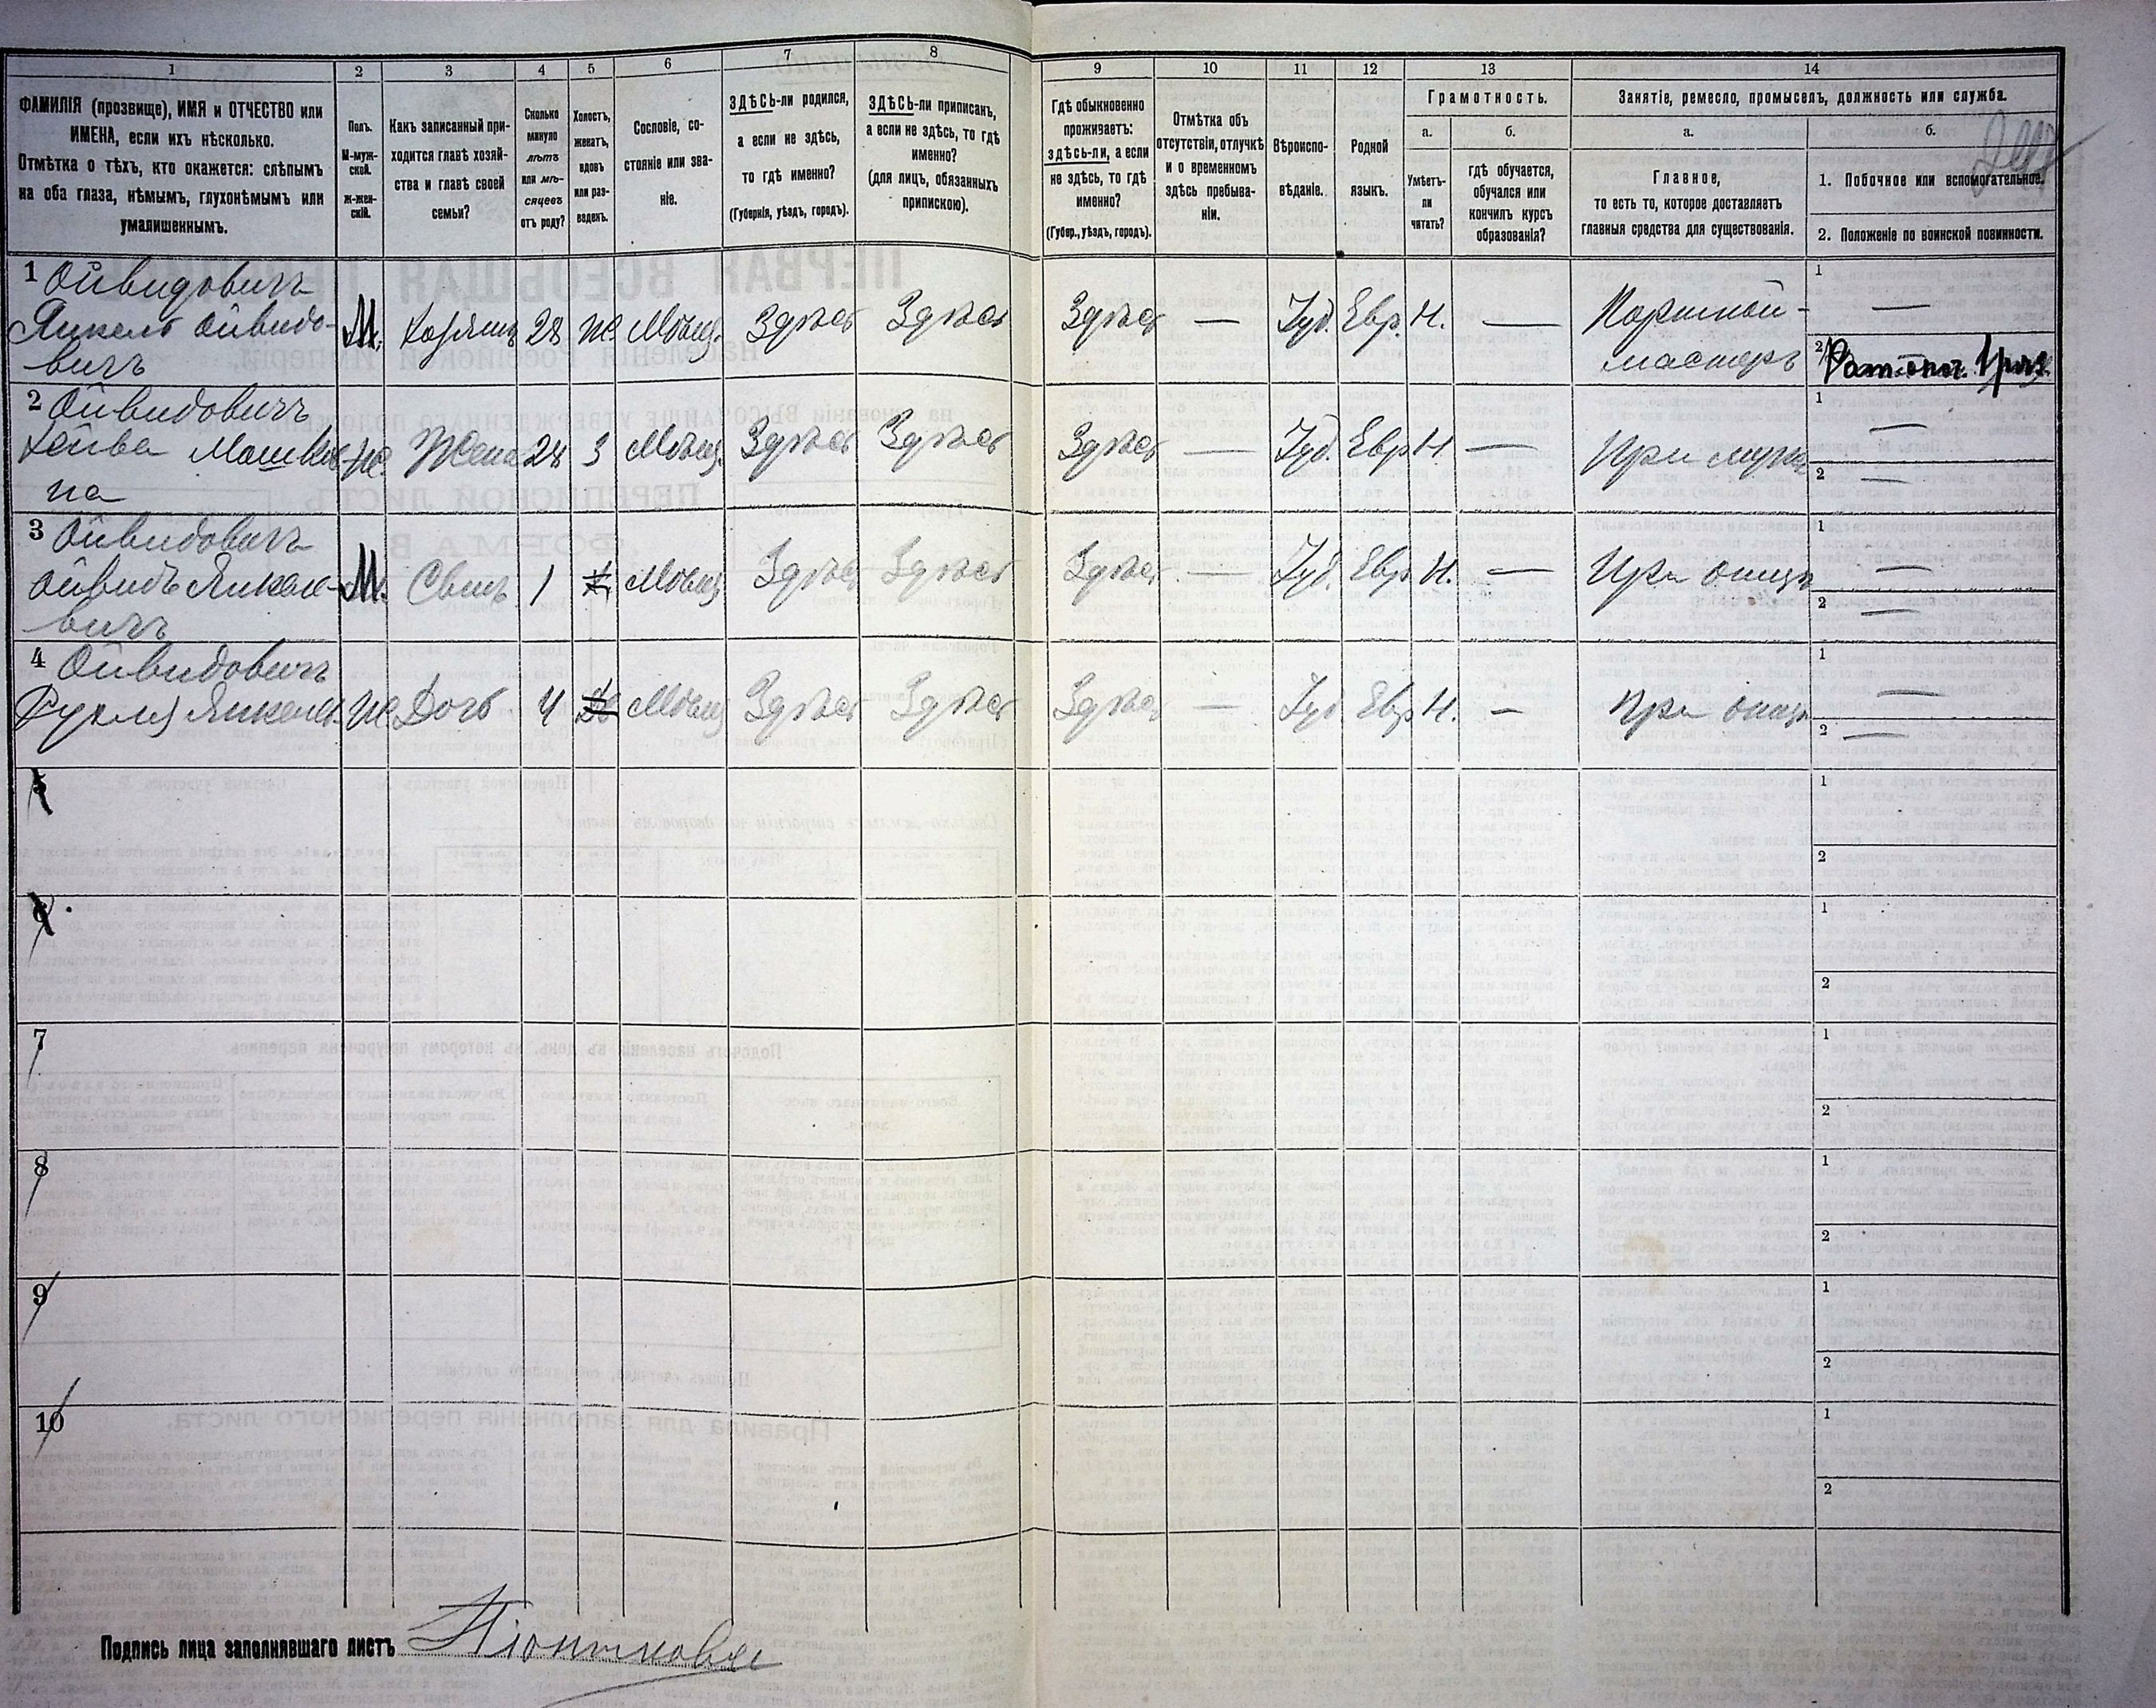 1 2 3 4 5 6 7 8 9 10 11 12 13 14
ФАМИЛІЯ (прозвище), ИМЯ и ОТЧЕСТВО или
ИМЕНА, если ихъ нѣсколько.
Отмѣтка о тѣхъ, кто окажется: слѣпымъ
на оба глаза, нѣмымъ, глухонѣмымъ или
умалишеннымъ.
Полъ.
М-муж-
ской.
Ж-жен-
скій.
Какъ записанный при-
ходится главѣ хозяй-
ства и главѣ своей
семьи?
Сколько
минуло
лѣтъ
или мѣ-
сяцевъ
отъ роду?
Холостъ,
женатъ,
вдовъ
или раз-
веденъ.
Сословіе, со-
стояніе или зва-
ніе.
ЗДѢСЬ-ли родился,
а если не здѣсь,
то гдѣ именно?
(Губернія, уѣздъ, городъ).
ЗДѢСЬ-ли приписанъ,
а если не здѣсь, то гдѣ
именно?
(для лицъ, обязанныхъ
припискою).
Гдѣ обыкновенно
проживаетъ:
здѣсь-ли, а если
не здѣсь, то гдѣ
именно?
(Губер., уѣздъ, городъ).
Отмѣтка объ
отсутствіи, отлучкѣ
и о временномъ
здѣсь пребыва-
ніи.
Вѣроиспо-
вѣданіе.
Родной
языкъ.
Грамотность.
а.
Умѣетъ-
ли
читать?
б.
гдѣ обучается,
обучался или
кончилъ курсъ
образованія?
Занятіе, ремесло, промыселъ, должность или служба.
а.
Главное,
то есть то, которое доставляетъ
главныя средства для существованія.
б.
1. Побочное или вспомогательное.
2. Положеніе по воинской повинности.
1 Ойвидовичъ
Янкель Ойвидо-
вичъ
М. Хозяинъ 28 Ж. Мѣщ. Здѣсь Здѣсь Здѣсь — Іуд. Евр. Н. — Портной-
мастеръ
1 —
2
2 Ойвидовичъ
Хейва
на
Ж. Жена 28 З Мѣщ. Здѣсь Здѣсь Здѣсь — Іуд. Евр Н. — При мужѣ
1 —
2 —
3 Ойвидовичъ
Ойвидъ Янкеле-
вичъ
М. Сынъ 1 Мѣщ Здѣсь Здѣсь Здѣсь — Іуд. Евр Н. — При отцѣ
1 —
2 —
4 Ойвидовичъ
Рухля Янкелев.
Ж Дочь 4 Мѣщ Здѣсь Здѣсь Здѣсь — Іуд Евр Н. — При отцѣ
1 —
2 —
5 1
2
6 1
2
7 1
2
8 1
2
9 1
2
10 1
2
Подпись лица заполнявшаго листъ